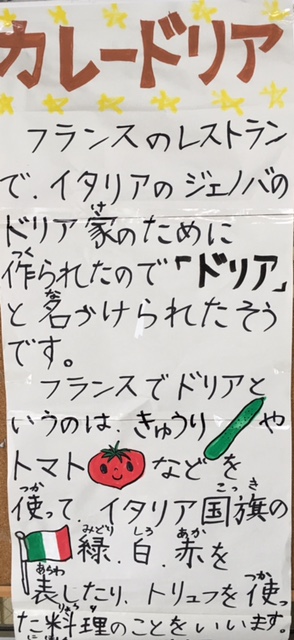 カレードリア
フランスのレストラン
で、イタリアのジェノバの
ドリア家のために
作られたので「ドリア」
と名かけられたそう
です。
フランスでドリアと
いうのは、きゅうりや
トマトなどを
使って、イタリア国旗の
緑、白、赤を
表したり、トリュフを使っ
た料理のことをいいます。